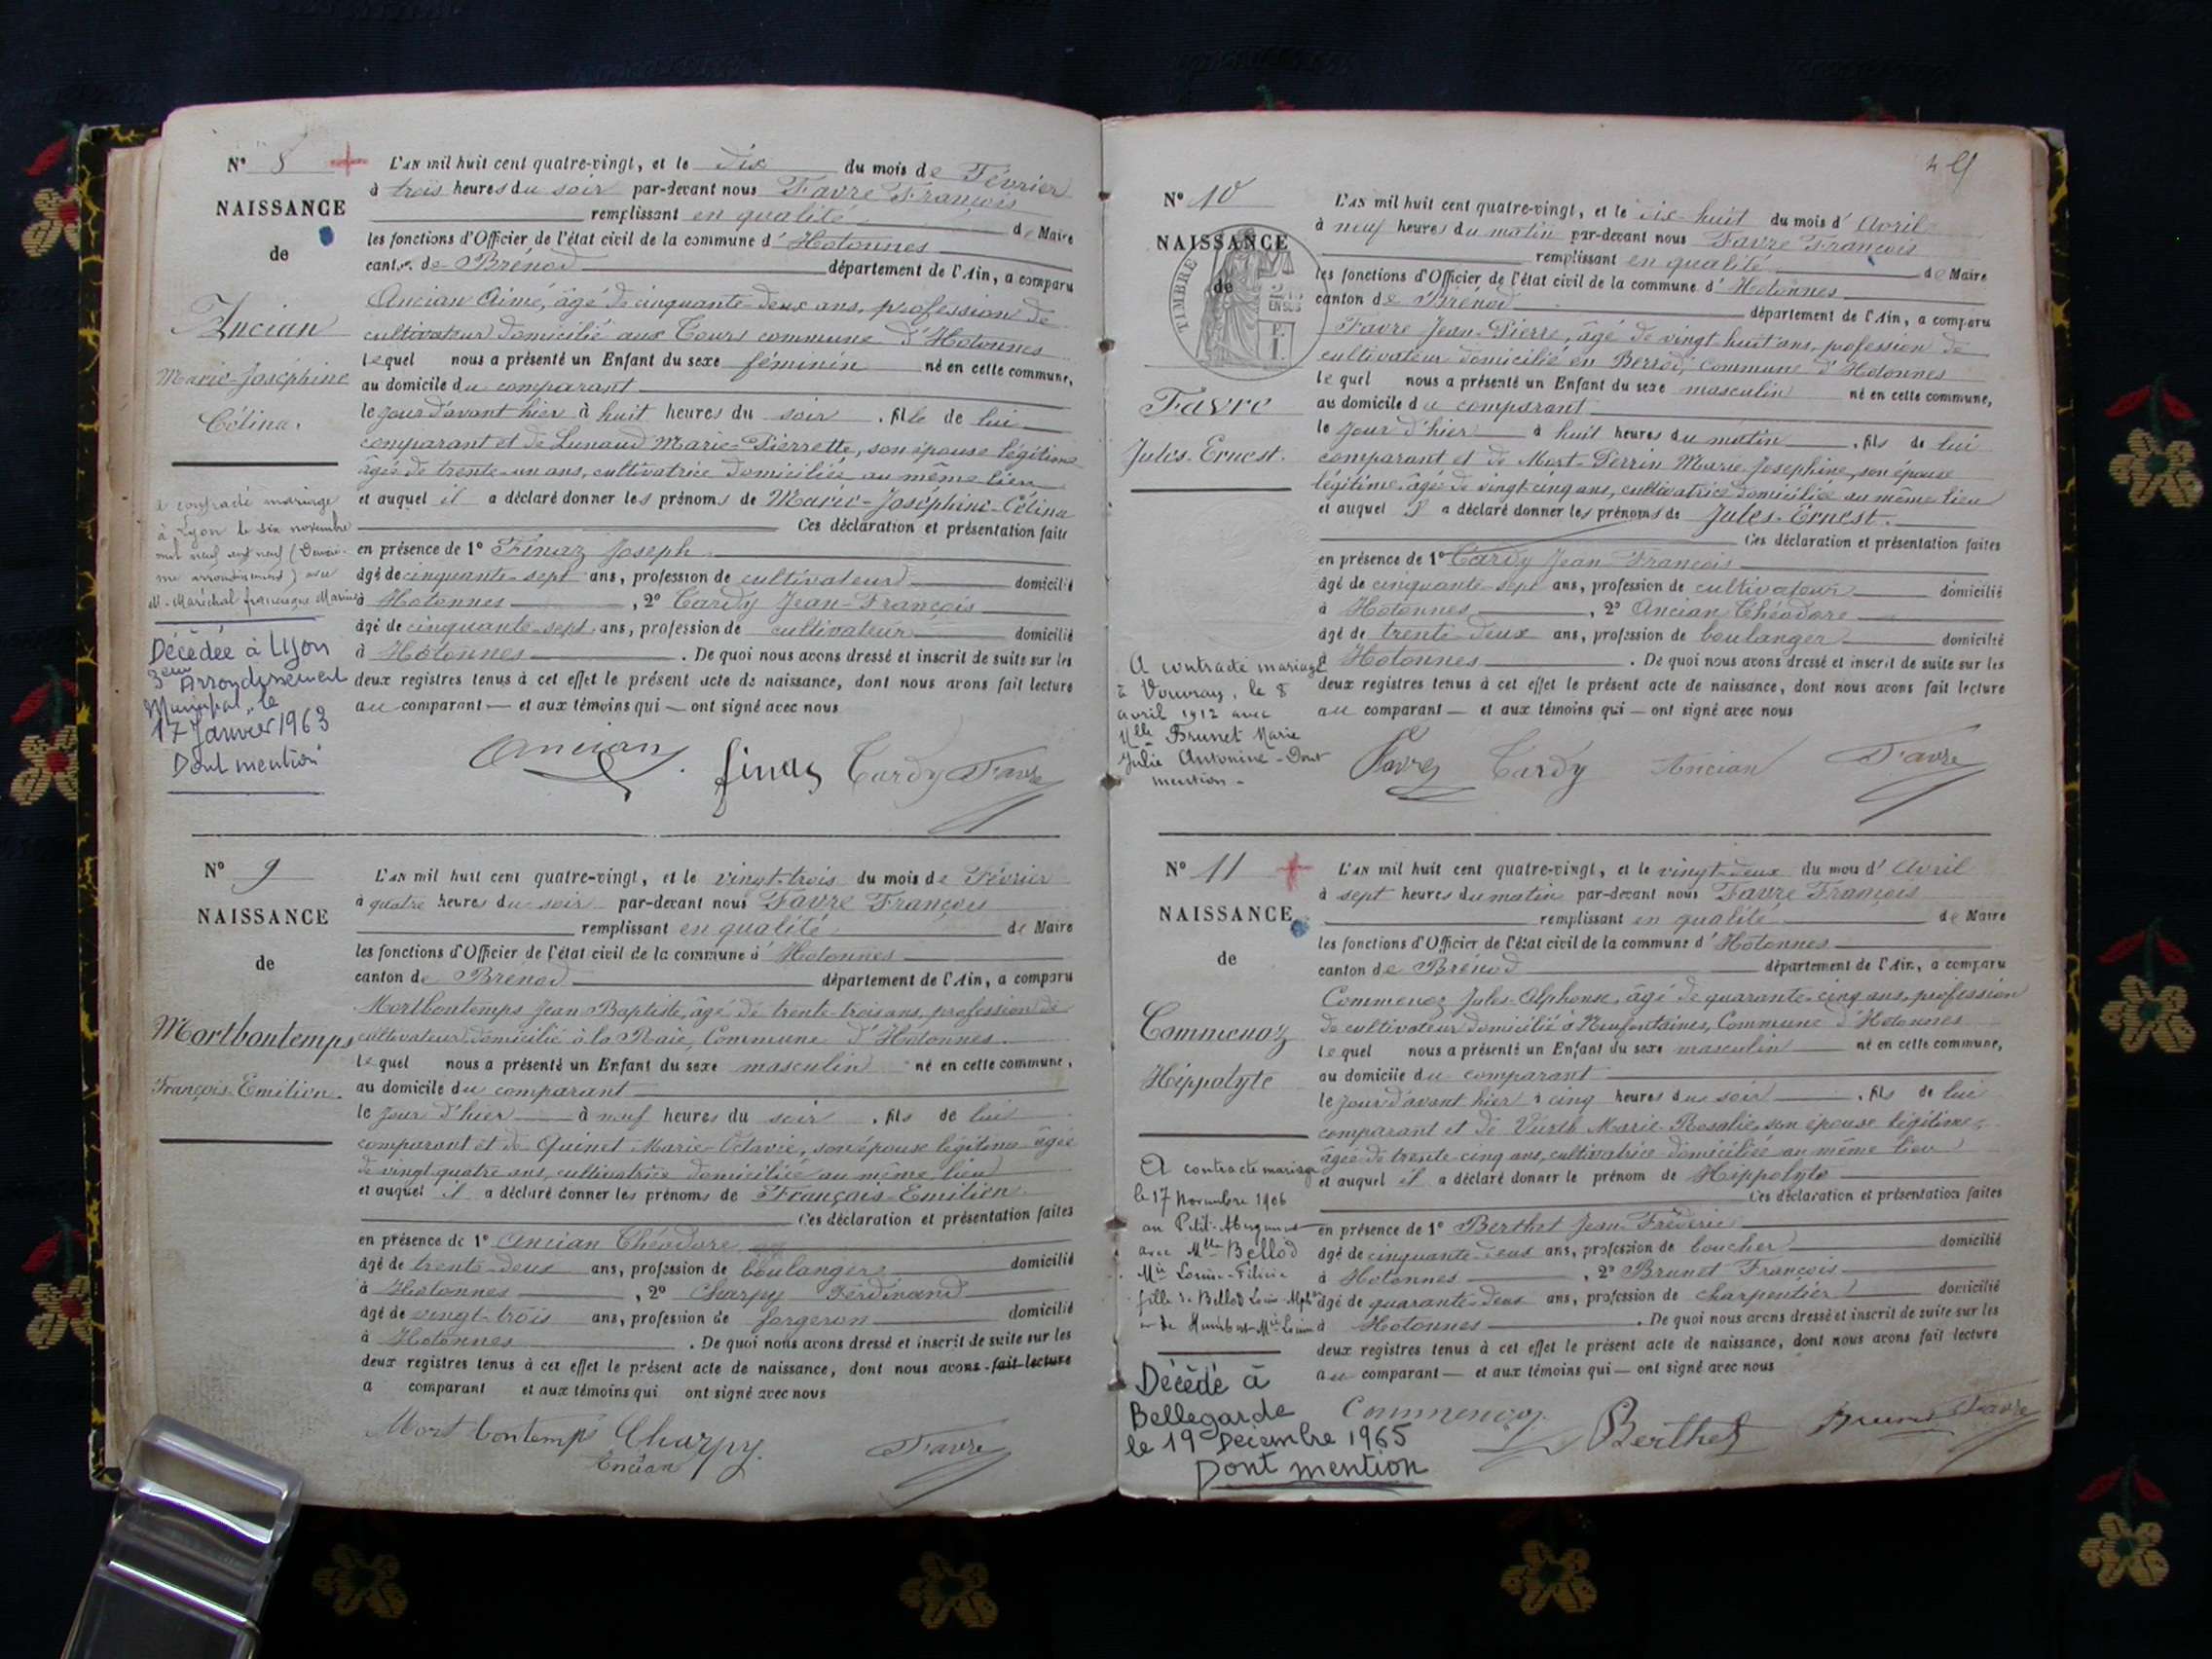 N° 8
NAISSANCE
de
Ancian
Marie-Joséphine
Célina.
a contracté mariage
à Lyon le six novembre
mil neuf cent neuf (Deuxiè-
me arrondissement) avec
M. Maréchal francisque Marius
Décédée à Lyon
3ème Arrondissement
Municipal, le
17 Janvier 1963
Dont mention
L'AN mil huit cent quatre-vingt, et le dix du mois de Février
à trois heures du soir par-devant nous Favre François
remplissant en qualité de Maire
les fonctions d'Officier de l'état civil de la commune d'Hotonnes
canton de Brénod département de l'Ain, a comparu
Ancian Aimé, âgé de cinquante-deux ans, profession de
cultivateur domicilié aux Cours commune d'Hotonnes
lequel nous a présenté un Enfant du sexe féminin né en cette commune,
au domicile du comparant
le jour d'avant hier à huit heures du soir, fille de lui
comparant et de Lunaud Marie-Pierrette, son épouse légitime
âgée de trente-un ans, cultivatrice domiciliée au même lieu
et auquel il a déclaré donner les prénoms de Marie-Joséphine-Célina
Ces déclaration et présentation faites
en présence de 1° Finaz Joseph
âgé de cinquante-sept ans, profession de cultivateur domicilié
à Hotonnes, 2° Tardy Jean-François
âgé de cinquante-sept ans, profession de cultivateur domicilié
à Hotonnes. De quoi nous avons dressé et inscrit de suite sur les
deux registres tenus à cet effet le présent acte de naissance, dont nous avons fait lecture
au comparant — et aux témoins qui — ont signé avec nous
Ancian finaz Tardy Favre
N° 9
NAISSANCE
de
Mortbontemps
François-Emilien.
L'AN mil huit cent quatre-vingt, et le vingt-trois du mois de Février
à quatre heures du soir par-devant nous Favre François
remplissant en qualité de Maire
les fonctions d'Officier de l'état civil de la commune d'Hotonnes
canton de Brénod département de l'Ain, a comparu
Mortbontemps Jean Baptiste, âgé de trente-trois ans, profession de
cultivateur domicilié à la Raie, Commune d'Hotonnes.
lequel nous a présenté un Enfant du sexe masculin né en cette commune,
au domicile du comparant
le jour d'hier à neuf heures du soir, fils de lui
comparant et de Quinet Marie-Octavie, son épouse légitime âgée
de vingt quatre ans, cultivatrice domiciliée au même lieu
et auquel il a déclaré donner les prénoms de François-Emilien.
Ces déclaration et présentation faites
en présence de 1° Ancian Théodore
âgé de trente-deux ans, profession de boulanger domicilié
à Hotonnes, 2° Charpy Ferdinand
âgé de vingt-trois ans, profession de forgeron domicilié
à Hotonnes. De quoi nous avons dressé et inscrit de suite sur les
deux registres tenus à cet effet le présent acte de naissance, dont nous avons fait lecture
a comparant et aux témoins qui ont signé avec nous
Mort bontemps Charpy. Favre
Ancian
N° 10
NAISSANCE
de
TIMBRE
Favre
Jules-Ernest.
A contracté mariage
à Vouvray, le 8
avril 1912 avec
Mlle Brunet Marie
Julie Antonine - Dont
mention -
L'AN mil huit cent quatre-vingt, et le dix-huit du mois d'Avril
à neuf heures du matin par-devant nous Favre François
remplissant en qualité de Maire
les fonctions d'Officier de l'état civil de la commune d'Hotonnes
canton de Brénod département de l'Ain, a comparu
Favre Jean-Pierre, âgé de vingt huit ans, profession de
cultivateur domicilié en Berrod, commune d'Hotonnes
lequel nous a présenté un Enfant du sexe masculin né en cette commune,
au domicile du comparant
le jour d'hier à huit heures du matin, fils de lui
comparant et de Mort-Perrin Marie Josephine, son épouse
légitime, âgée de vingt-cinq ans, cultivatrice domiciliée au même lieu
et auquel il a déclaré donner les prénoms de Jules-Ernest.
Ces déclaration et présentation faites
en présence de 1° Tardy Jean François
âgé de cinquante-sept ans, profession de cultivateur domicilié
à Hotonnes, 2° Ancian Théodore
âgé de trente-deux ans, profession de boulanger domicilié
à Hotonnes. De quoi nous avons dressé et inscrit de suite sur les
deux registres tenus à cet effet le présent acte de naissance, dont nous avons fait lecture
au comparant — et aux témoins qui — ont signé avec nous
Favre Tardy Ancian Favre
N° 11
NAISSANCE
de
Commenoz
Hippolyte
A contracté mariage
le 17 Novembre 1906
au Petit-Abergement
avec Mlle Bellod
Mie Louise-Félicie
fille de Bellod Louis Alph.
Décédé à
Bellegarde
le 19 Décembre 1965
Dont mention
L'AN mil huit cent quatre-vingt, et le vingt-deux du mois d'Avril
à sept heures du matin par-devant nous Favre François
remplissant en qualité de Maire
les fonctions d'Officier de l'état civil de la commune d'Hotonnes
canton de Brénod département de l'Ain, a comparu
Commenoz Jules-Alphonse, âgé de quarante-cinq ans, profession
de cultivateur domicilié à Neufontaines, Commune d'Hotonnes
lequel nous a présenté un Enfant du sexe masculin né en cette commune,
au domicile du comparant
le jour d'avant hier à cinq heures du soir, fils de lui
comparant et de Marie Rosalie, son épouse légitime,
âgée de trente-cinq ans, cultivatrice domiciliée au même lieu
et auquel il a déclaré donner le prénom de Hippolyte
Ces déclaration et présentation faites
en présence de 1° Berthet Jean Frédéric
âgé de cinquante-deux ans, profession de boucher domicilié
à Hotonnes, 2° Brunet François
âgé de quarante-deux ans, profession de charpentier domicilié
à Hotonnes. De quoi nous avons dressé et inscrit de suite sur les
deux registres tenus à cet effet le présent acte de naissance, dont nous avons fait lecture
au comparant — et aux témoins qui — ont signé avec nous
Commenoz Berthet Brunet Favre